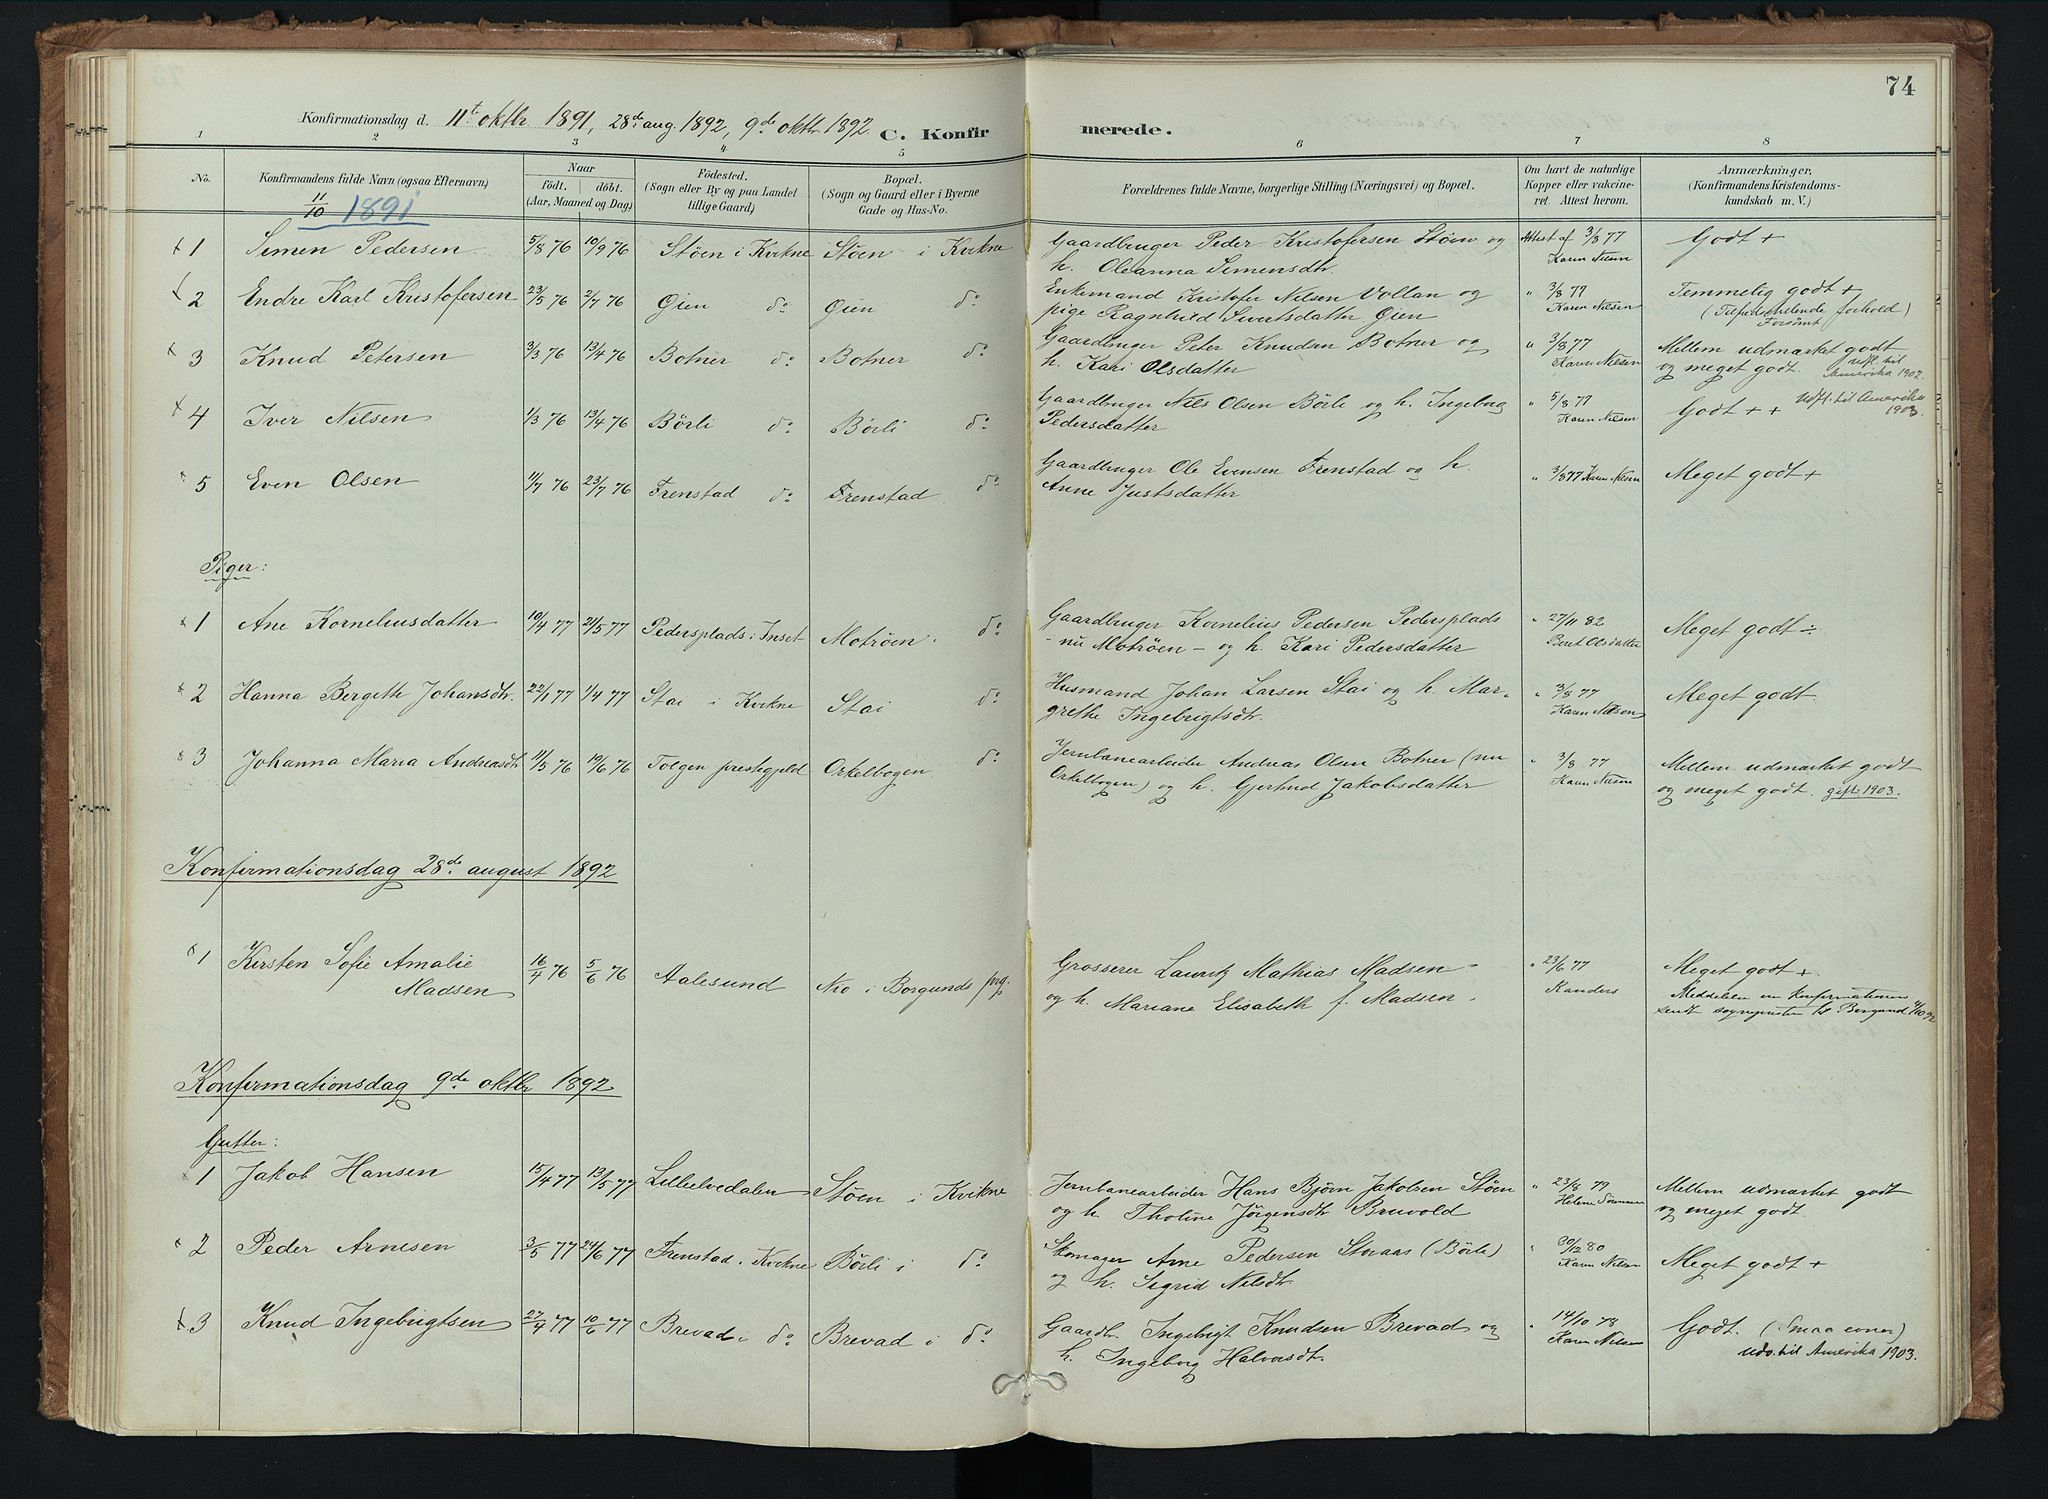 74
Konfirmationsdag d. 11t oktbr 1891, 28de aug. 1892, 9de oktbr. 1892. C. Konfirmerede.
1 2 3 4 5 6 7 8
No. Konfirmandens fulde Navn (ogsaa Efternavn) Naar født. døbt. (Aar, Maaned og Dag.) Fødested. (Sogn eller By og paa Landet tillige Gaard.) Bopæl. (Sogn og Gaard eller i Byerne Gade og Hus-No. Forældrenes fulde Navne, borgerlige Stilling (Næringsvei) og Bopæl. Om havt de naturlige Kopper eller vakcineret. Attest herom. Anmærkninger. (Konfirmandens Kristendomskundskab m. V.)
11/10 1891
1 Simen Pedersen 5/8 76 10/9 76 Støen i Kvikne Støen i Kvikne Gaardbruger Peder Kristofersen Støen og Attest af 3/8 77 Godt +
h. Oleanna Simensdtr. Karen Nilsen
2 Endre Karl Kristofersen 23/5 76 2/7 76 Gien do Gien do Enkemand Kristofer Nilsen Vollan og " 3/8 77 Temmelig godt +
pige Ragnhild Sivertsdatter Gien Karen Nilsen forhold)
Forsømt
3 Knud Petersen 3/3 76 13/4 76 Botner do Botner do Gaardbruger Peter Knudsen Botner og " 3/8 77 Mellem udmærket godt
h. Kari Olsdatter Karen Nilsen og meget godt. udfl. til Amerika 1902.
4 Iver Nilsen 1/3 76 13/4 76 Børli do Børli do Gaardbruger Nils Olsen Børli og h. Ingeborg " 5/8 77 Godt + + Udfl. til Amerika
Pedersdatter Karen Nilsen 1903.
5 Even Olsen 11/7 76 23/7 76 Frenstad do Frenstad do Gaardbruger Ole Evensen Frenstad og h. " 3/8 77 Karen Nilsen Meget godt +
Anne Justsdatter
Piger:
1 Ane Korneliusdatter 10/4 77 21/5 77 Pedersplads i Inset Motrøen do Gaardbruger Kornelius Pedersen Pedersplads " 27/11 82 Meget godt ÷
- nu Motrøen - og h. Kari Pedersdatter Beret Olsdatter
2 Hanna Bergitte Johansdtr. 22/1 77 1/4 77 Stai i Kvikne Stai do Husmand Johan Larsen Stai og h. Mar- " 3/8 77 Meget godt.
grethe Ingebrigtsdtr. Karen Nilsen
3 Johanna Maria Andreasdtr 11/5 76 19/6 76 Tolgen prestegjeld Orkelbogen do Jernbanearbeider Andreas Olsen Botner (nu " 3/8 77 Mellem udmærket godt
Orkelbogen) og h. Gjertrud Jakobsdatter Karen Nilsen og meget godt. gift 1903.
Konfirmationsdag 28de august 1892
1 Kirsten Sofie Amalie 16/4 76 5/6 76 Aalesund i Borgunds prg. Grosserer Lauritz Mathias Madsen " 23/6 77 Meget godt +
Madsen og h. Mariane Elisabeth f. Madsen. Randers Meddelelse om Konfirmationen
sendt sognepresten til Borgund 11/10 92
Konfirmationsdag 9de oktbr 1892
Gutter:
1 Jakob Hansen 15/4 77 13/5 77 Lilleelvedalen Støen i Kvikne Jernbanearbeider Hans Bjørn Jakobsen Støen " 23/8 79 Mellem udmærket godt
og h. Tholine Jørgensdtr Bruvold Helene og meget godt.
2 Peder Arnesen 3/5 77 24/6 77 Frenstad i Kvikne Børli i do Skomager Arne Pedersen Storaas (Børli) " 30/12 80 Meget godt +
og h. Sigrid Nilsdtr. Karen Nilsen
3 Knud Ingebrigtsen 27/4 77 10/6 77 Brevad i do Brevad i do Gaardbr. Ingebrigt Knudsen Brevad og " 14/10 78 Godt. (Smaa evner)
h. Ingeborg Halvorsdtr. Karen Nilsen Udv. til Amerika 1903.